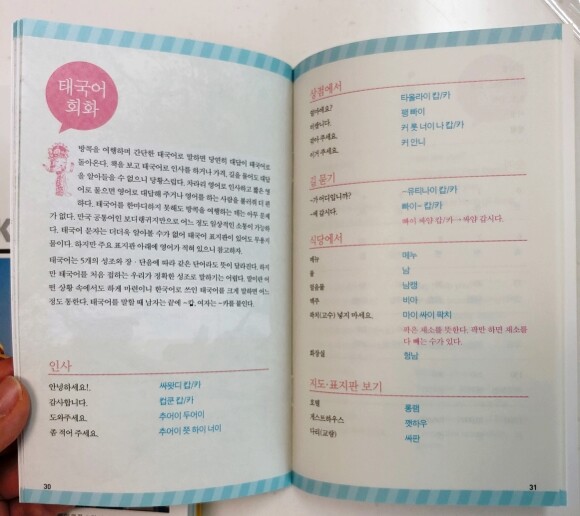 태국어
회화
방콕을 여행하며 간단한 태국어로 말하면 당연히 대답이 태국어로
돌아온다. 책을 보고 태국어로 인사를 하거나 가격, 길을 물어도 대답
을 알아들을 수 없으니 당황스럽다. 차라리 영어로 인사하고 짧은 영
어로 물으면 영어로 대답해 주거나 영어를 하는 사람을 불러와 더 편
하다. 태국어를 한마디하지 못해도 방콕을 여행하는 데는 아무 문제
가 없다. 만국 공통어인 보디랭귀지만으로 어느 정도 일상적인 소통이 가능하
다. 태국어 문자는 더더욱 알아볼 수가 없어 태국어 표지판이 있어도 무용지
물이다. 하지만 주요 표지판 아래에 영어가 적혀 있으니 참고하자.
태국어는 5개의 성조와 장·단음에 따라 같은 단어라도 뜻이 달라진다. 하지
만 태국어를 처음 접하는 우리가 정확한 성조로 말하기는 어렵다. 말이란 어
떤 상황 속에서도 하게 마련이니 한국어로 쓰인 태국어를 크게 말하면 어느
정도 통한다. 태국어를 말할 때 남자는 끝에 ~캅, 여자는 ~카를 붙인다.
인사
안녕하세요! 싸왓디 캅/카
감사합니다. 컵쿤 캅/카
도와주세요. 추어이 두어이
좀 적어 주세요. 추어이 쯧 하이 너이
30
상점에서
얼마예요? 타올라이 캅/카
비쌉니다. 팽 빠이
깎아 주세요. 커 롯 너이 나 캅/카
싸 주세요. 커 안니
길 묻기
~가 어디입니까? ~유티나이 캅/카
~에 갑시다. 빠이~ 캅/카
빠이 싸얌 캅/카 → 싸얌 갑시다.
식당에서
메뉴 메누
물 남
얼음물 남켕
맥주 비아
팍치(고수) 넣지 마세요. 마이 싸이 팍치
팍은 채소를 뜻한다. 팍만 하면 채소를
다 빼는 수가 있다.
화장실 헝남
지도·표지판 보기
호텔 롱램
게스트하우스 껫하우
다리(교량) 싸판
31